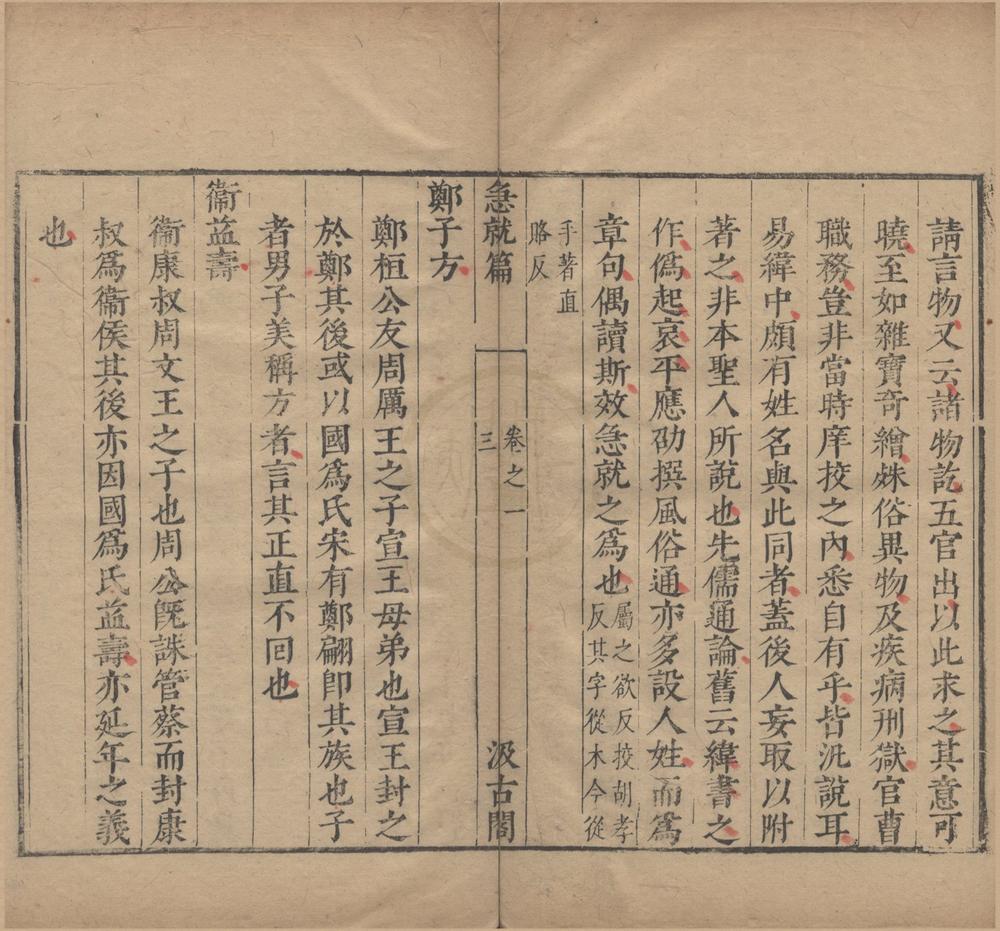 請言物又云諸物訖五官出以此求之其意可
曉至如雜寶奇繒殊俗異物及疾病刑獄官曹
職務豈非當時庠挍之內悉自有乎皆汎說耳
易緯中頗有姓名與此同者蓋後人妄取以附
著之非本聖人所說也先儒通論舊云緯書之
作僞起哀平應劭撰風俗通亦多設人姓而爲
章句偶讀斯效急就之爲也屬之欲反挍胡孝
反其字從木今從
手著直
略反
急就篇 卷之一 三 汲古閣
鄭子方
鄭桓公友周厲王之子宣王母弟也宣王封之
於鄭其後或以國爲氏宋有鄭翩卽其族也子
者男子美稱方者言其正直不回也
衞益壽
衞康叔周文王之子也周公旣誅管蔡而封康
叔爲衞侯其後亦因國爲氏益壽亦延年之義
也